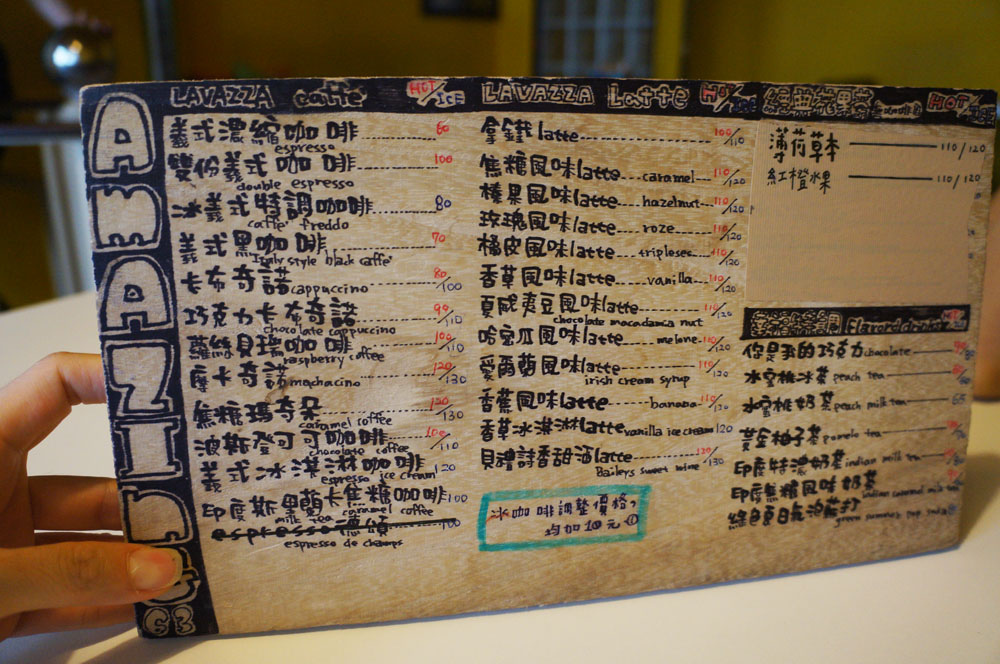 AMAZING
63
LAVAZZA caffe' HOT/ICE
義式濃縮咖啡 60
espresso
雙份義式咖啡 100
double espresso
冰義式特調咖啡 80
caffe' freddo
義式黑咖啡 70
Italy style black caffe'
卡布奇諾 cappuccino 80/100
巧克力卡布奇諾 90/110
chocolate cappuccino
蘿絲貝瑞咖啡 100/110
raspberry coffee
摩卡奇諾 machacino 120/130
焦糖瑪奇朵 120/130
caramel coffee
波斯登可可咖啡 100/110
chocolate coffee
義式冰淇淋咖啡 120
espresso ice cream
印度斯里蘭卡焦糖咖啡 100
milk tea caramel coffee
espresso 100
espresso de champs
LAVAZZA Latte HOT/ICE
拿鐵 latte 100/110
焦糖風味latte caramel 110/120
榛果風味latte hazelnut 110/120
玫瑰風味latte roze 110/120
橘皮風味latte tripleses 110/120
香草風味latte vanilla 110/120
夏威夷豆風味latte 110/120
chocolate macadamia nut
哈密瓜風味latte melone 110/120
愛爾蘭風味latte 110/120
irish cream syrup
香蕉風味latte banana 110/120
香草冰淇淋latte vanilla ice cream 120
貝禮詩香甜酒latte 120/130
Baileys sweet wine
冰咖啡調整價格,
均加10元
HOT
薄荷草本 110/120
紅橙水果 110/120
HOT
你是我的巧克力 chocolate
水蜜桃冰茶 peach tea
水蜜桃奶茶 peach milk tea 65
黃金柚子茶 pomelo tea
印度特濃奶茶 indian milk tea
印度焦糖風味奶茶
indian caramel milk tea
綠色夏日氣泡蘇打
green summer pop soda